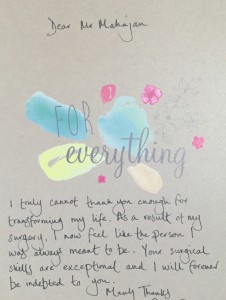 Dear Mr Mahajan
FOR
everything
I truly cannot thank you enough for
transforming my life. As a result of my
surgery, I now feel like the person I
was always meant to be. Your surgical
skills are exceptional and I will forever
be indepted to you.
Many Thanks